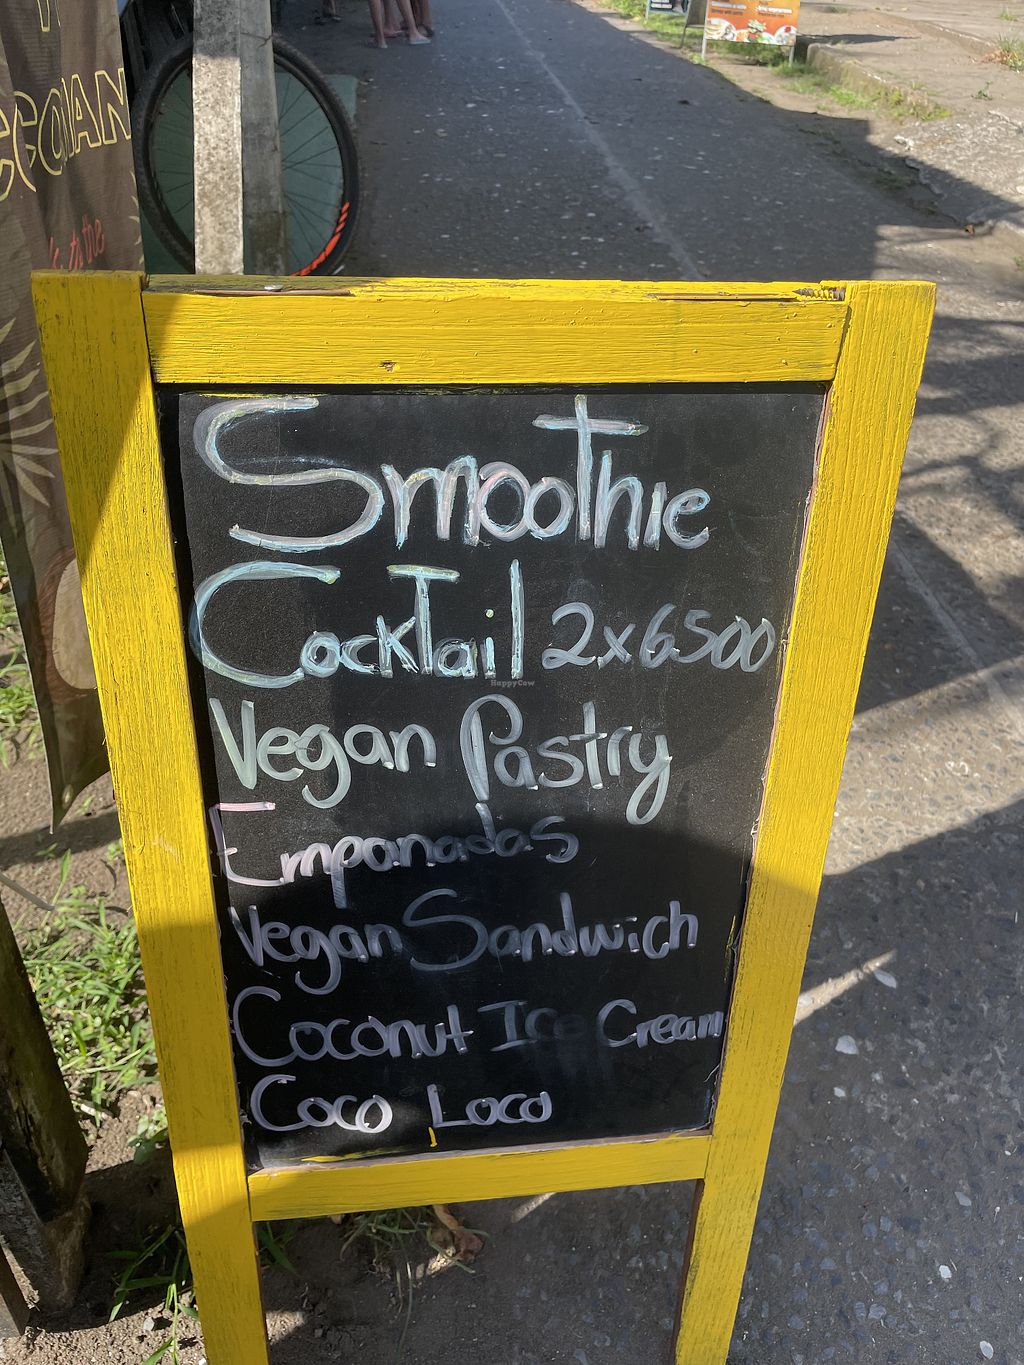 Smoothie
Cocktail 2x6500
Vegan Pastry
Empanadas
Vegan Sandwich
Coconut Ice Cream
Coco Loco
HappyCow